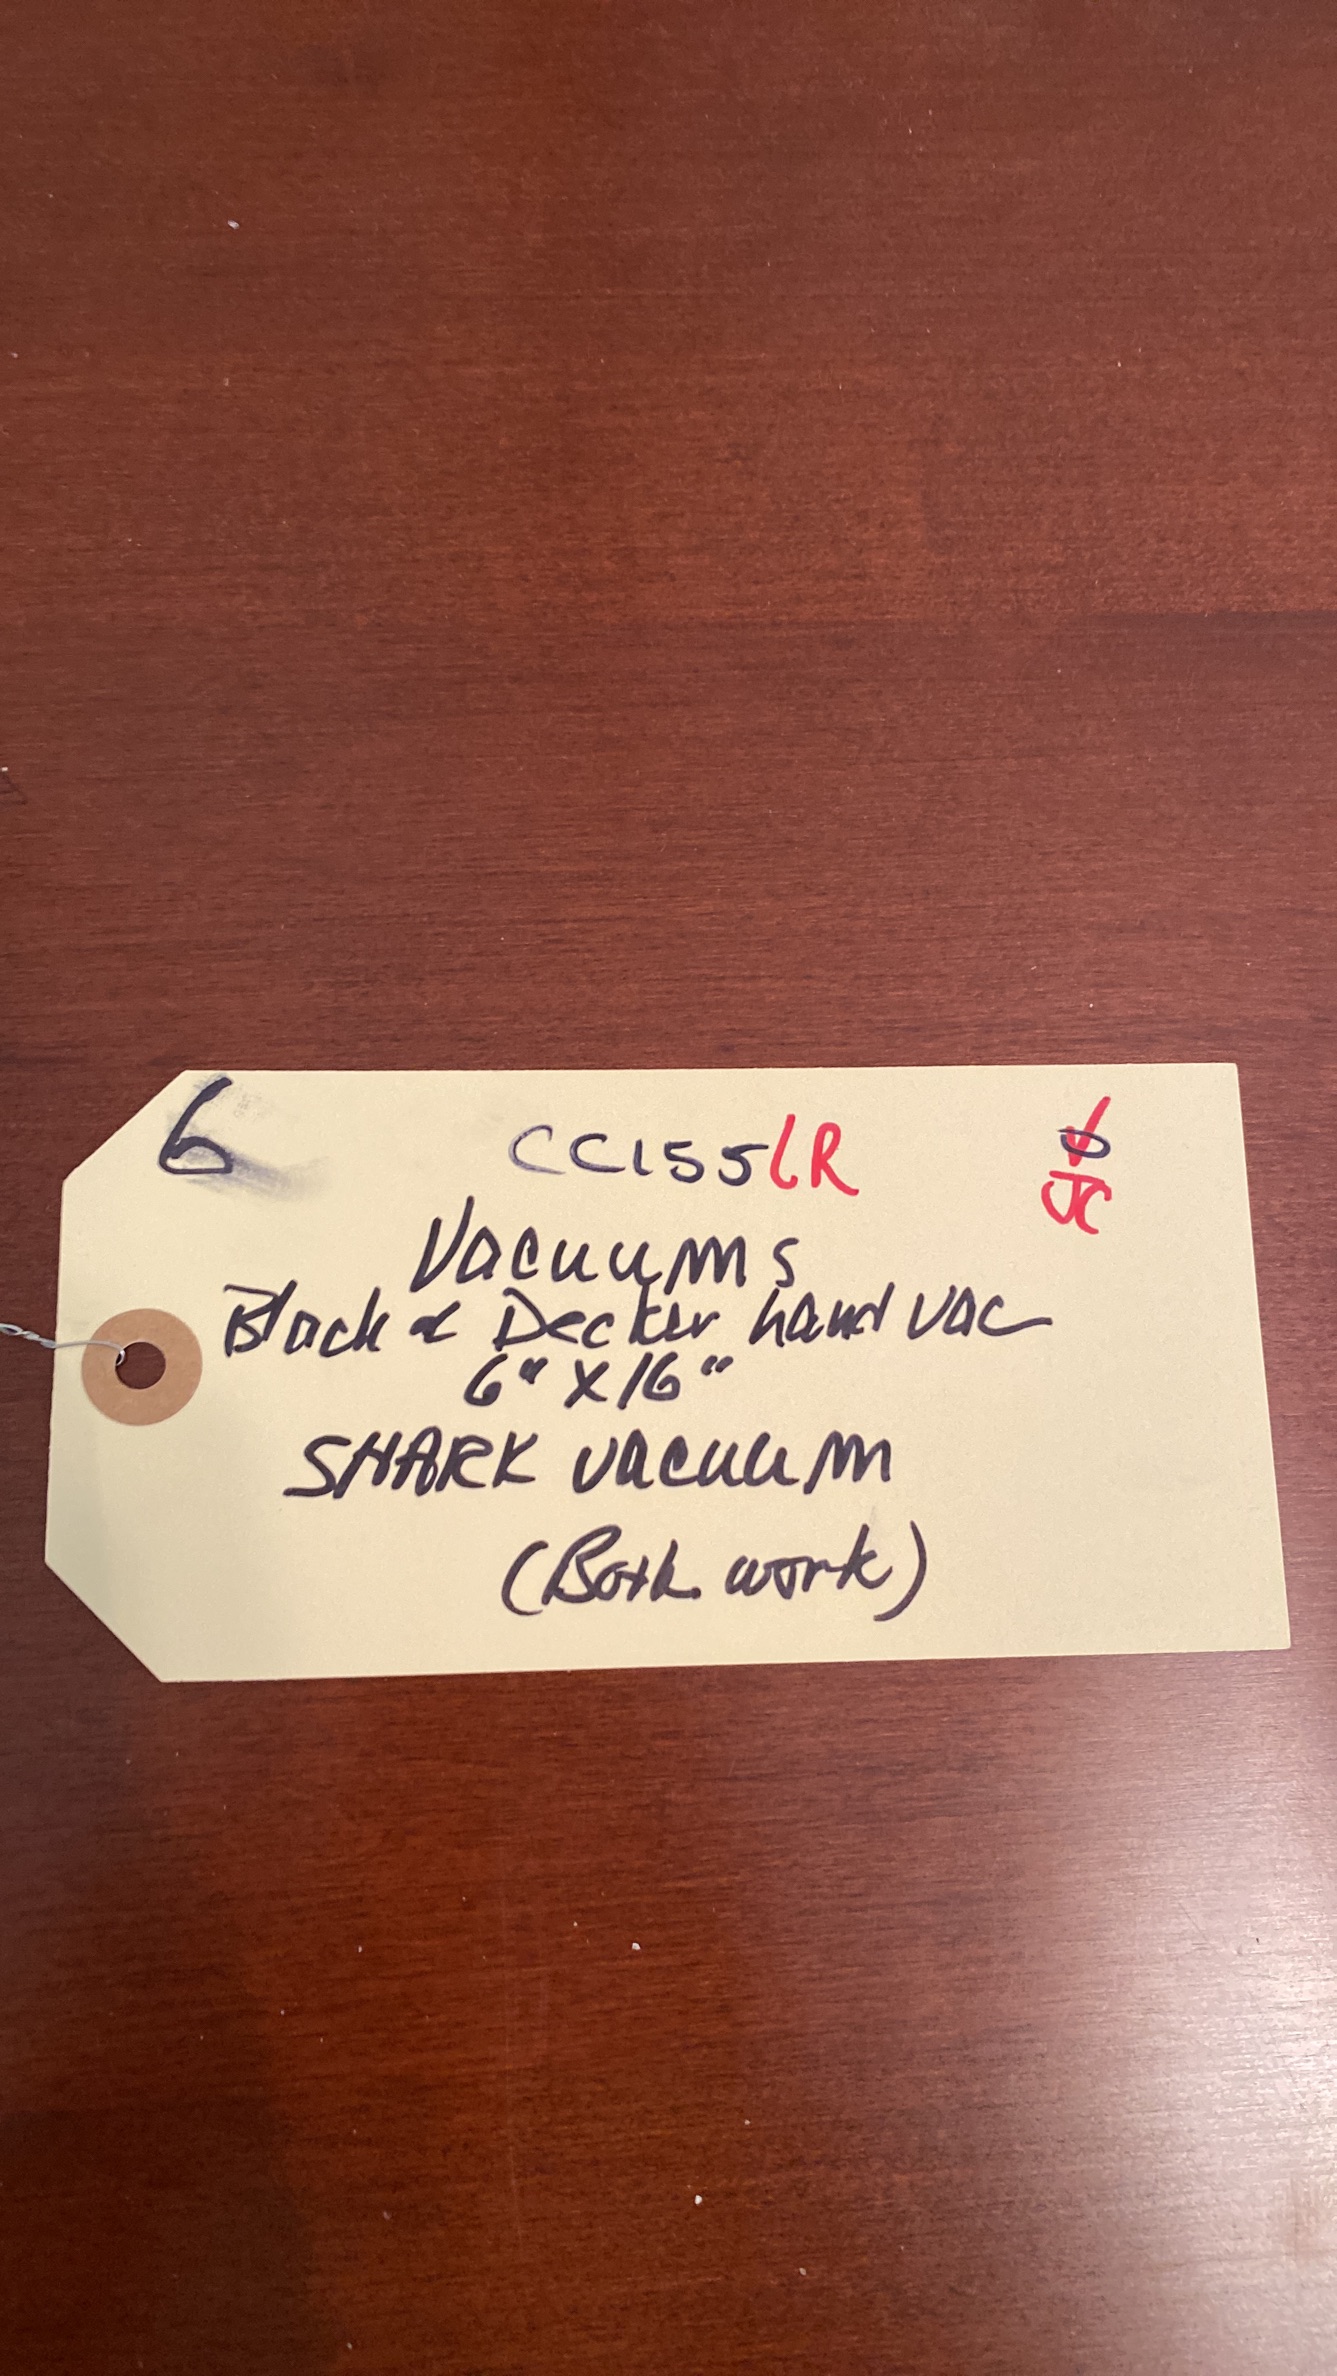 6
CC155LR
JC
Vacuums
Black & Decker hand vac
6" X 16"
SHARK vacuum
(Both work)